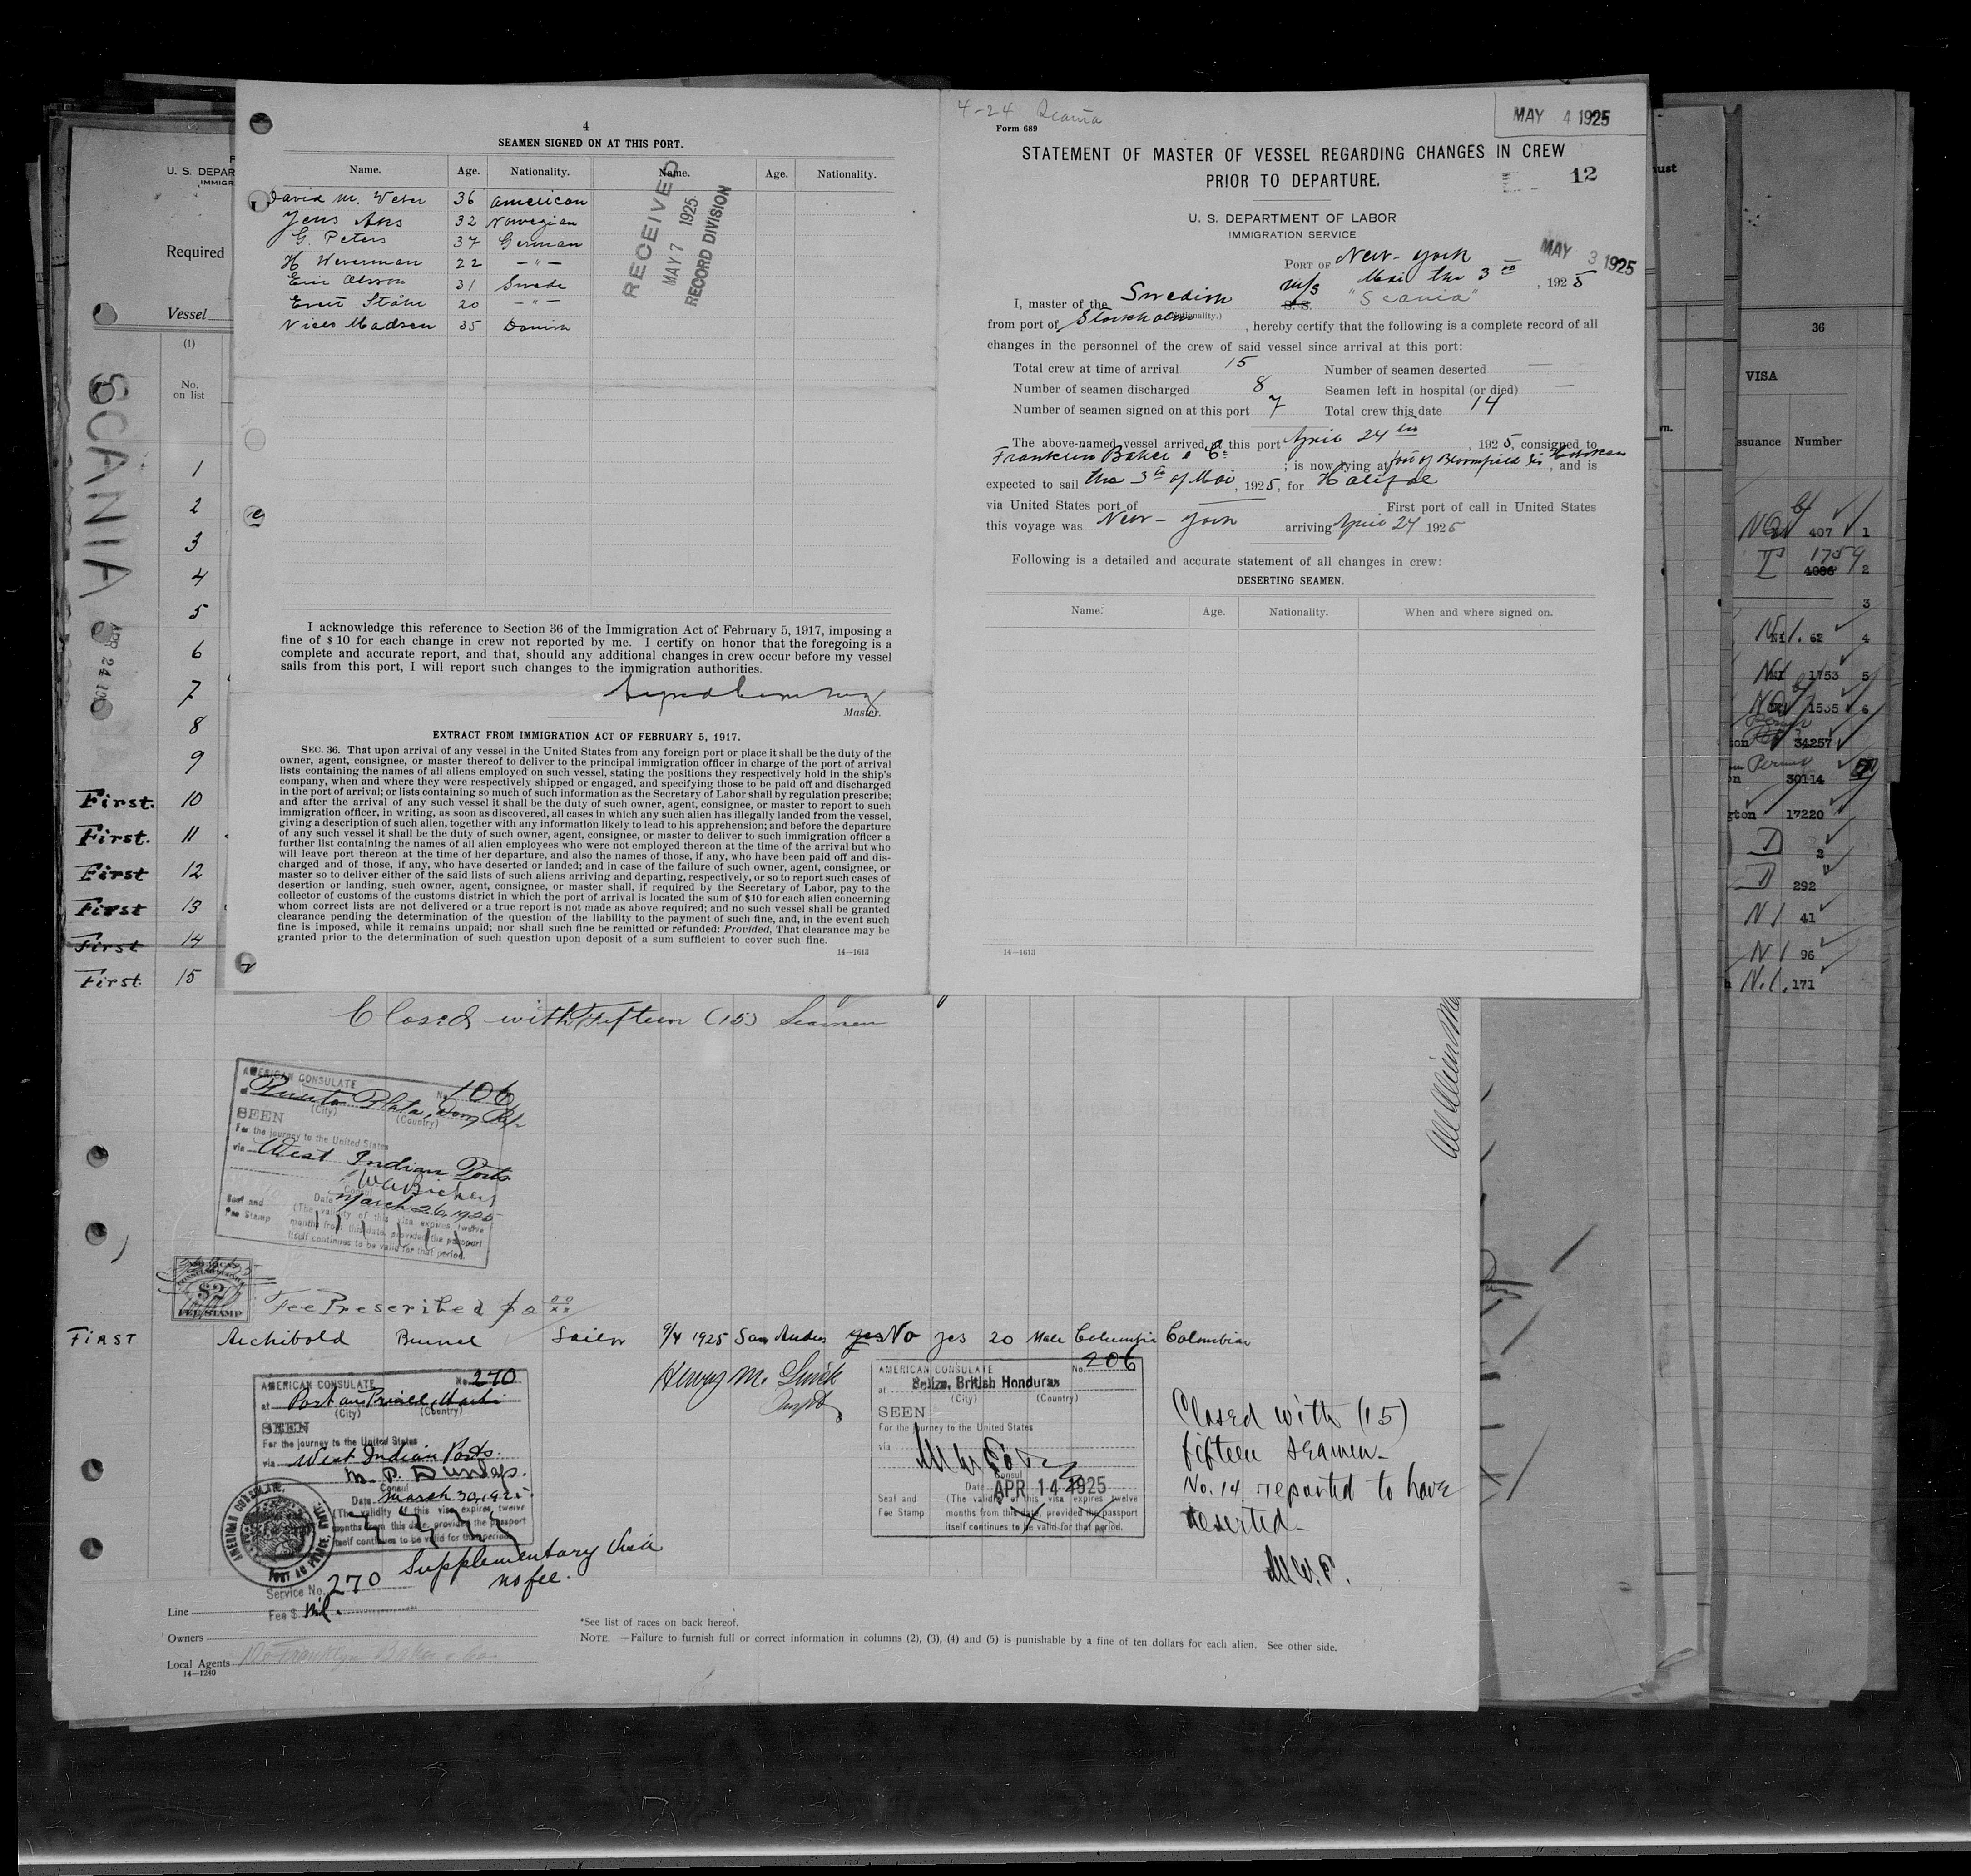 4
SEAMEN SIGNED ON AT THIS PORT.
Name. Age. Nationality. Name. Age. Nationality.
David M. Weber 36 American
Jens Ans 32 Norwegian
G. Peters 37 German
H. 22 — " —
Eric Olsson 31 Swede
Ståhl 20 — " —
Niels Madsen 35 Danish
RECEIVED
MAY 7 1925
RECORD DIVISION
I acknowledge this reference to Section 36 of the Immigration Act of February 5, 1917, imposing a
fine of $10 for each change in crew not reported by me. I certify on honor that the foregoing is a
complete and accurate report, and that, should any additional changes in crew occur before my vessel
sails from this port, I will report such changes to the immigration authorities.
Master.
EXTRACT FROM IMMIGRATION ACT OF FEBRUARY 5, 1917.
SEC. 36. That upon arrival of any vessel in the United States from any foreign port or place it shall be the duty of the
owner, agent, consignee, or master thereof to deliver to the principal immigration officer in charge of the port of arrival
lists containing the names of all aliens employed on such vessel, stating the positions they respectively hold in the ship's
company, when and where they were respectively shipped or engaged, and specifying those to be paid off and discharged
in the port of arrival; or lists containing so much of such information as the Secretary of Labor shall by regulation prescribe;
and after the arrival of any such vessel it shall be the duty of such owner, agent, consignee, or master to report to such
immigration officer, in writing, as soon as discovered, all cases in which any such alien has illegally landed from the vessel,
giving a description of such alien, together with any information likely to lead to his apprehension; and before the departure
of any such vessel it shall be the duty of such owner, agent, consignee, or master to deliver to such immigration officer a
further list containing the names of all alien employees who were not employed thereon at the time of the arrival but who
will leave port thereon at the time of her departure, and also the names of those, if any, who have been paid off and dis-
charged and of those, if any, who have deserted or landed; and in case of the failure of such owner, agent, consignee, or
master so to deliver either of the said lists of such aliens arriving and departing, respectively, or so to report such cases of
desertion or landing, such owner, agent, consignee, or master shall, if required by the Secretary of Labor, pay to the
collector of customs of the customs district in which the port of arrival is located the sum of $10 for each alien concerning
whom correct lists are not delivered or a true report is not made as above required; and no such vessel shall be granted
clearance pending the determination of the question of the liability to the payment of such fine, and, in the event such
fine is imposed, while it remains unpaid; nor shall such fine be remitted or refunded: Provided, That clearance may be
granted prior to the determination of such question upon deposit of a sum sufficient to cover such fine.
14—1613
4-24 Scania
Form 689
MAY 4 1925
STATEMENT OF MASTER OF VESSEL REGARDING CHANGES IN CREW
PRIOR TO DEPARTURE.
12
U. S. DEPARTMENT OF LABOR
IMMIGRATION SERVICE
MAY 3 1925
PORT OF New-York
Mai the 3rd, 1925
I, master of the Swedish M/S S. S. "Scania"
(Nationality.)
from port of Stockholm, hereby certify that the following is a complete record of all
changes in the personnel of the crew of said vessel since arrival at this port:
Total crew at time of arrival 15 Number of seamen deserted —
Number of seamen discharged 8 Seamen left in hospital (or died) —
Number of seamen signed on at this port 7 Total crew this date 14
The above-named vessel arrived at this port April 24th, 1925, consigned to
Franklin Baker & Co; is now lying at foot of Bloomfield St Hoboken, and is
expected to sail the 3rd of Mai, 1925, for Halifax
via United States port of First port of call in United States
this voyage was New-York arriving April 24 1925
Following is a detailed and accurate statement of all changes in crew:
DESERTING SEAMEN.
Name. Age. Nationality. When and where signed on.
14—1613
U. S. DEPAR
IMMIGR
Required
Vessel
(1)
No.
on list
SCANIA
1
2
3
4
5
6
7
8
9
First. 10
First. 11
First 12
First 13
First 14
First 15
36
VISA
ssuance Number
407 1
1759
4086 2
3
N.I. 62 4
1753 5
1535 6
ton 34257
30114
gton 17220
D 2
D 292
N I 41
N I 96
N.I. 171
Closed with Fifteen (15) Seamen
AMERICAN CONSULATE
No. 106
at Puerto Plata, Dom. Rep.
(City) (Country)
SEEN
For the journey to the United States
via West Indian Ports
Consul
Date March 26, 1925
Seal and
Fee Stamp
(The validity of this visa expires twelve
months from this date, provided the passport
itself continues to be valid for that period.
$2
FEE STAMP
Fee Prescribed $2 00/xx
FIRST Archibold Bunnel Sailor 9/4 1925 San Andres yes No yes 20 Male Columbia Colombian
AMERICAN CONSULATE No. 270
at Port au Prince, Haiti
(City) (Country)
SEEN
For the journey to the United States
via West Indian Ports.
M. P. Dunlap.
Consul
Date March 30, 1925.
(The validity of this visa expires twelve
months from this date, provided the passport
itself continues to be valid for that period.
AMERICAN CONSULATE,
PORT AU PRINCE, HAITI.
Supplementary visa
no fee.
Service No. 270
Fee $ Nil.
AMERICAN CONSULATE No. 206
at Belize, British Honduras
(City) (Country)
SEEN
For the journey to the United States
via
Consul
Date APR 14 1925
Seal and
Fee Stamp
(The validity of this visa expires twelve
months from this date, provided the passport
itself continues to be valid for that period.
Closed with (15)
fifteen seamen—
No. 14 reported to have
deserted—
Line
Owners
Local Agents Franklyn Baker & Co.
14—1240
*See list of races on back hereof.
NOTE.—Failure to furnish full or correct information in columns (2), (3), (4) and (5) is punishable by a fine of ten dollars for each alien. See other side.